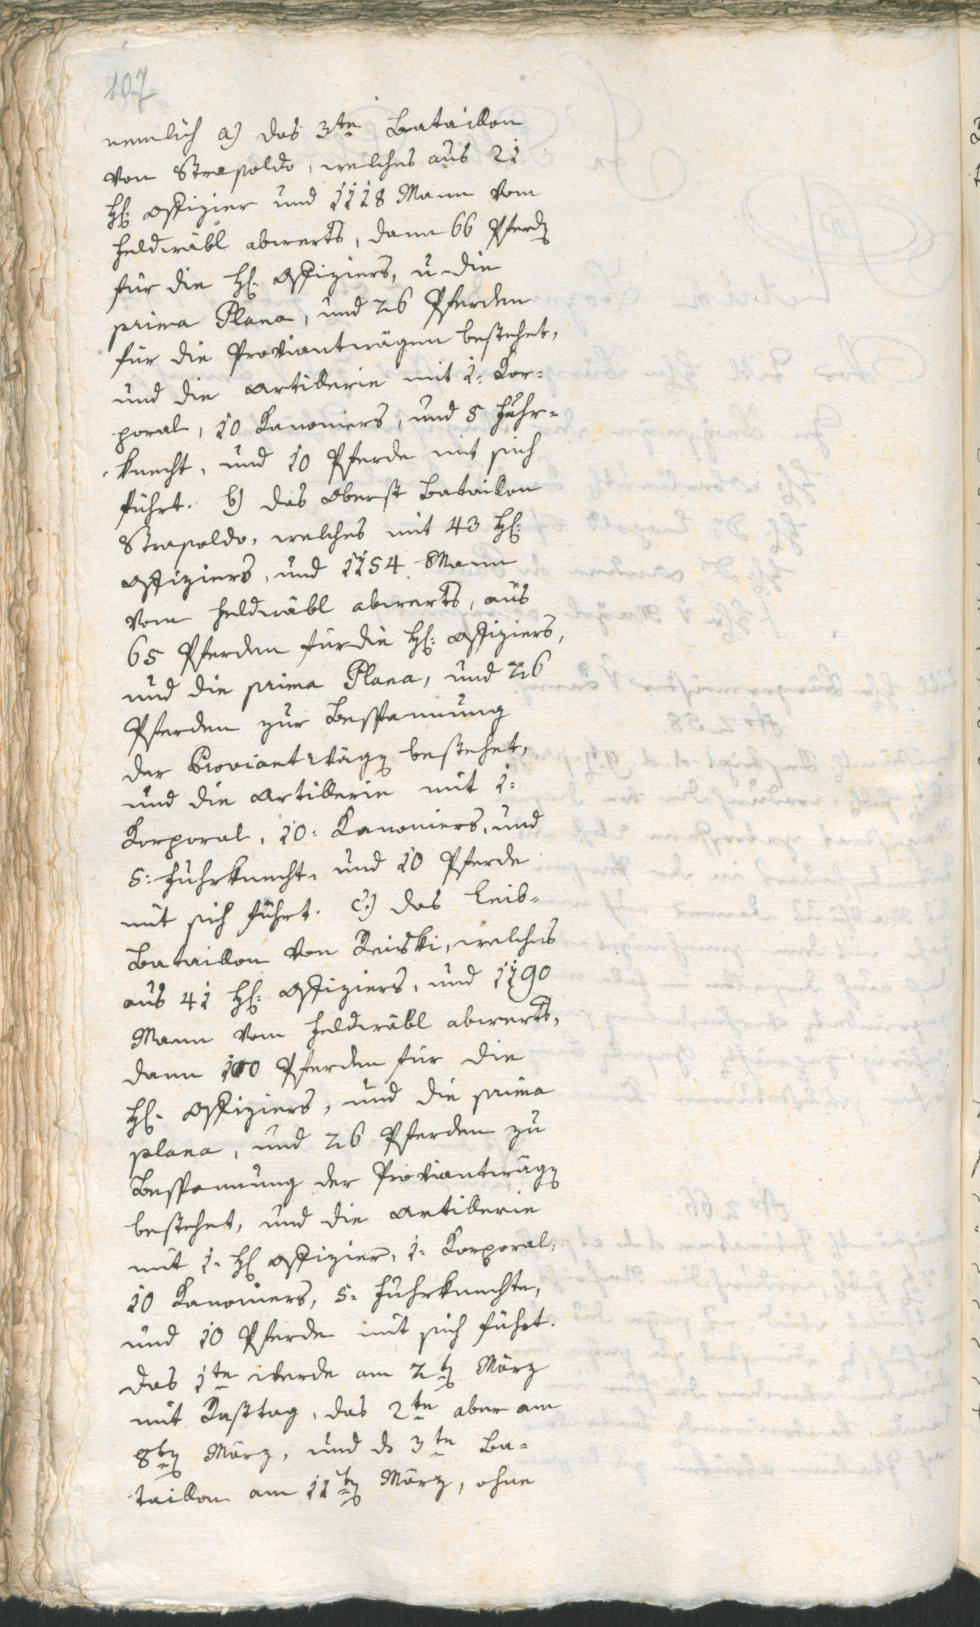 107
nemlich a) das 3te Bataillon
von Strasoldo, welches aus 21
H: Offizier und 1118 Mann vom
Feldwäbl abwerts, dann 66 Pferd
für die H: Offiziers, u die
prima Plana, und 26 Pferden
für die Proviantwägen bestehet,
und die Artillerie mit 1: Kor=
poral, 10 Kanoniers, und 5 Fuhr=
knecht, und 10 Pferde mit sich
führt. b) das Oberst Bataillon
Strasoldo, welches mit 43 H:
Offiziers, und 1154 Mann
vom Feldwäbl abwerts, aus
65 Pferden für die H: Offiziers,
und die prima Plana, und 26
Pferden zur Bespannung
der Proviantwäg bestehet,
und die Artillerie mit 1:
Korporal, 10: Kanoniers, und
5: Fuhrknecht, und 10 Pferde
mit sich führt. c) das Leib=
Bataillon von Reiski, welches
aus 41 H: Offiziers, und 1190
Mann vom Feldwäbl abwerts,
dann 100 Pferden für die
H: Offiziers, und die prima
plana, und 26 Pferden zu
Bespannung der Proviantwäg
bestehet, und die Artillerie
mit 1: H Offizier, 1: Korporal,
10 Kanoniers, 5: Fuhrknechte,
und 10 Pferde mit sich führt.
Das 1te werde am 2t März
mit Rasttag, das 2te aber am
8t März, und d 3te Ba=
taillon am 11t März, ohne